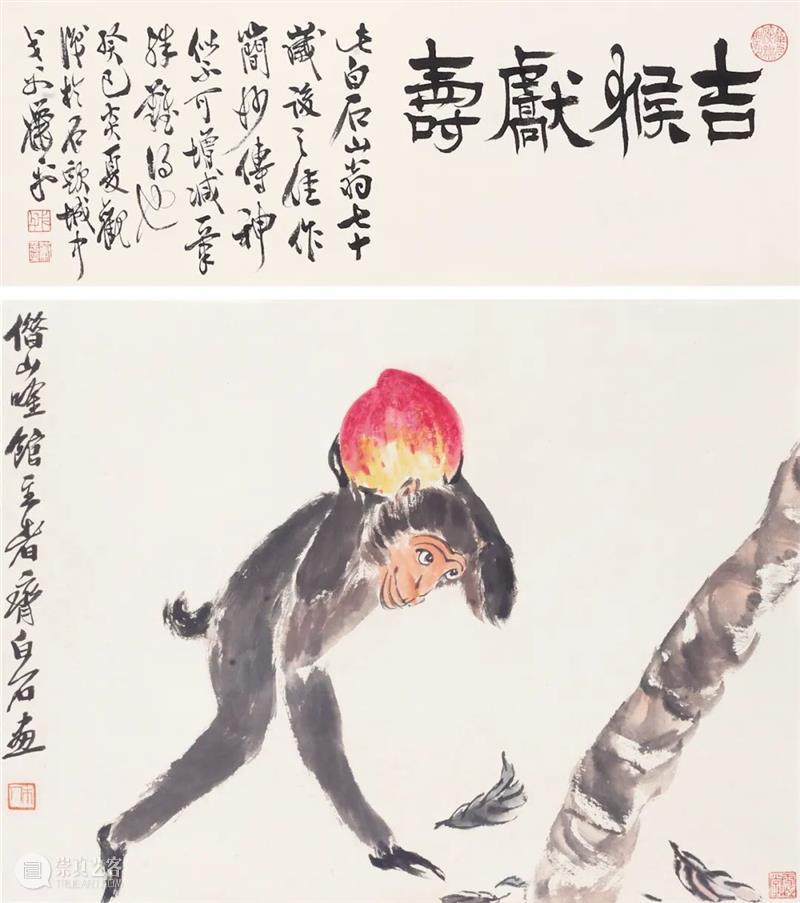 吉猴獻壽
此白石山翁七十
歲後之佳作
簡妙傳神
似不可增減一筆
殊難得也
癸巳炎夏觀
於石頭城中
借山唫館主者齊白石畫
木人
崇真艺客
TRUEART.COM